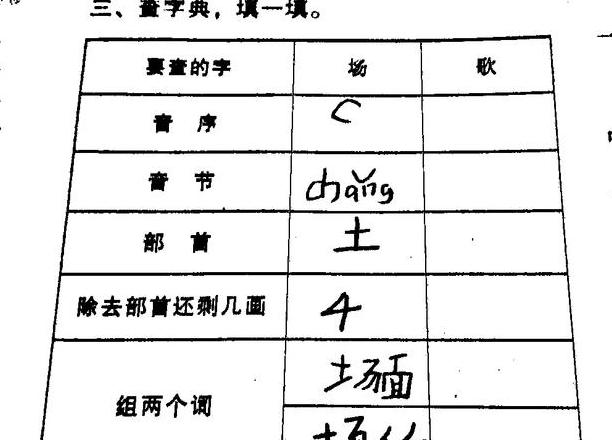 三、查字典，填一填。
要查的字 场 歌
音序 C
音节 chǎng
部首 土
除去部首还剩几画 4
场面
组两个词
场